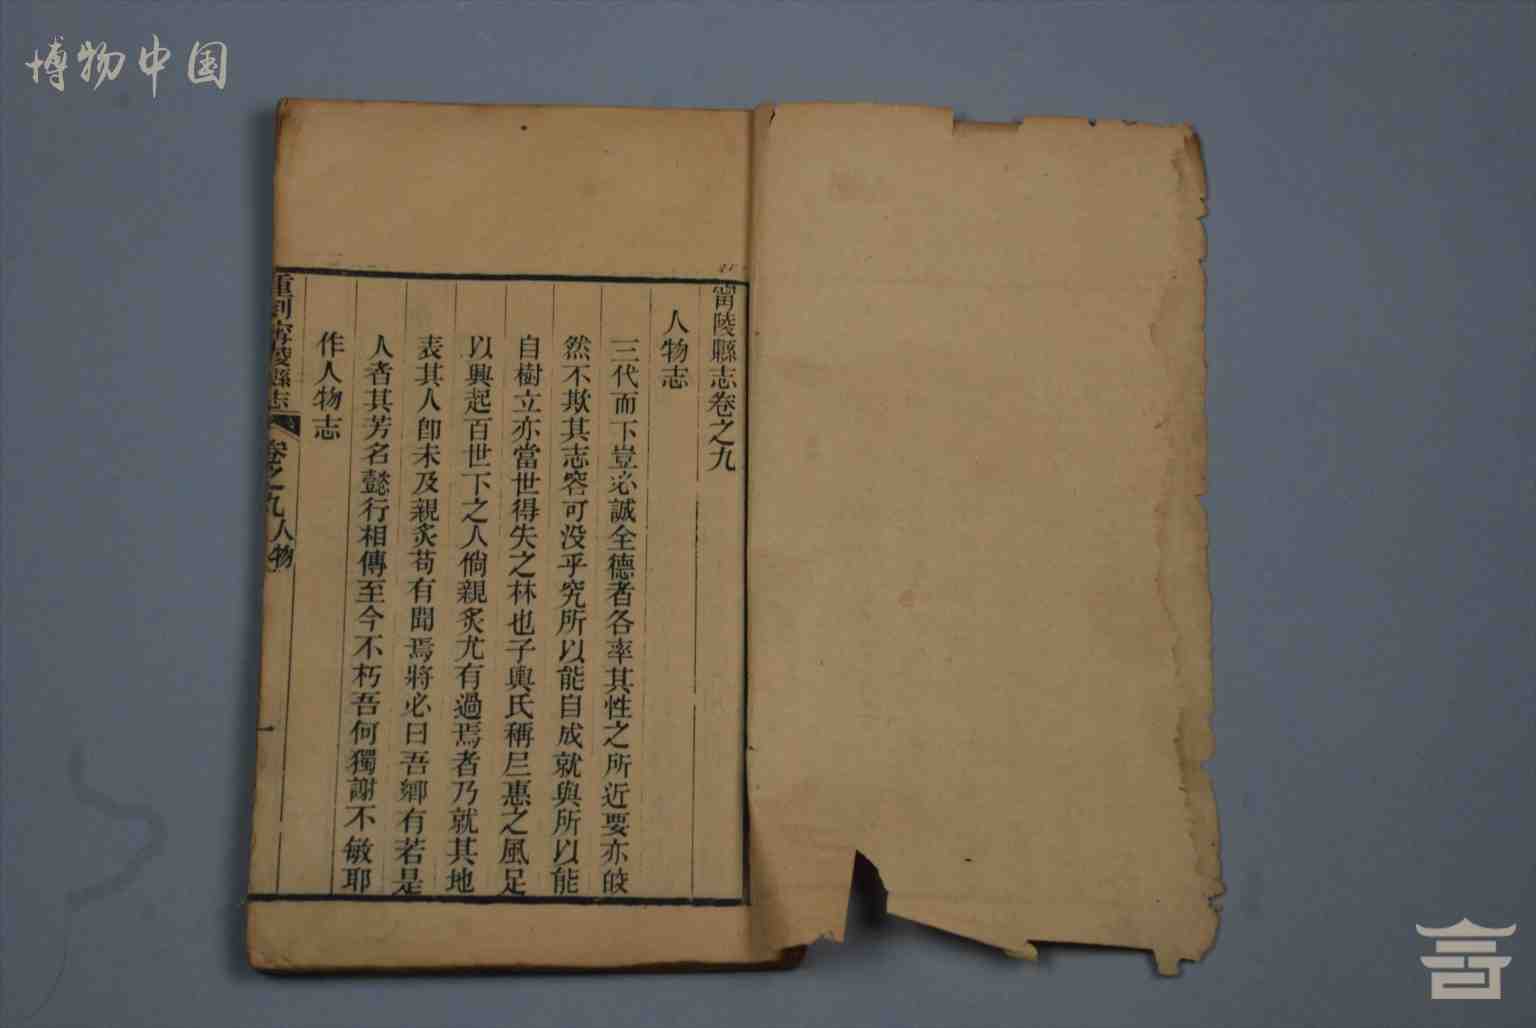 博物中国
甯陵縣志卷之九
人物志
三代而下豈必誠全德者各率其性之所近要亦皎
然不欺其志容可没乎究所以能自成就與所以能
自樹立亦當世得失之林也子輿氏稱尼惠之風足
以興起百世下之人倘親炙尤有過焉者乃就其地
表其人卽未及親炙苟有聞焉將必曰吾鄉有若是
人者其芳名懿行相傳至今不朽吾何獨謝不敏耶
作人物志
重刻甯陵縣志
卷之九人物
一